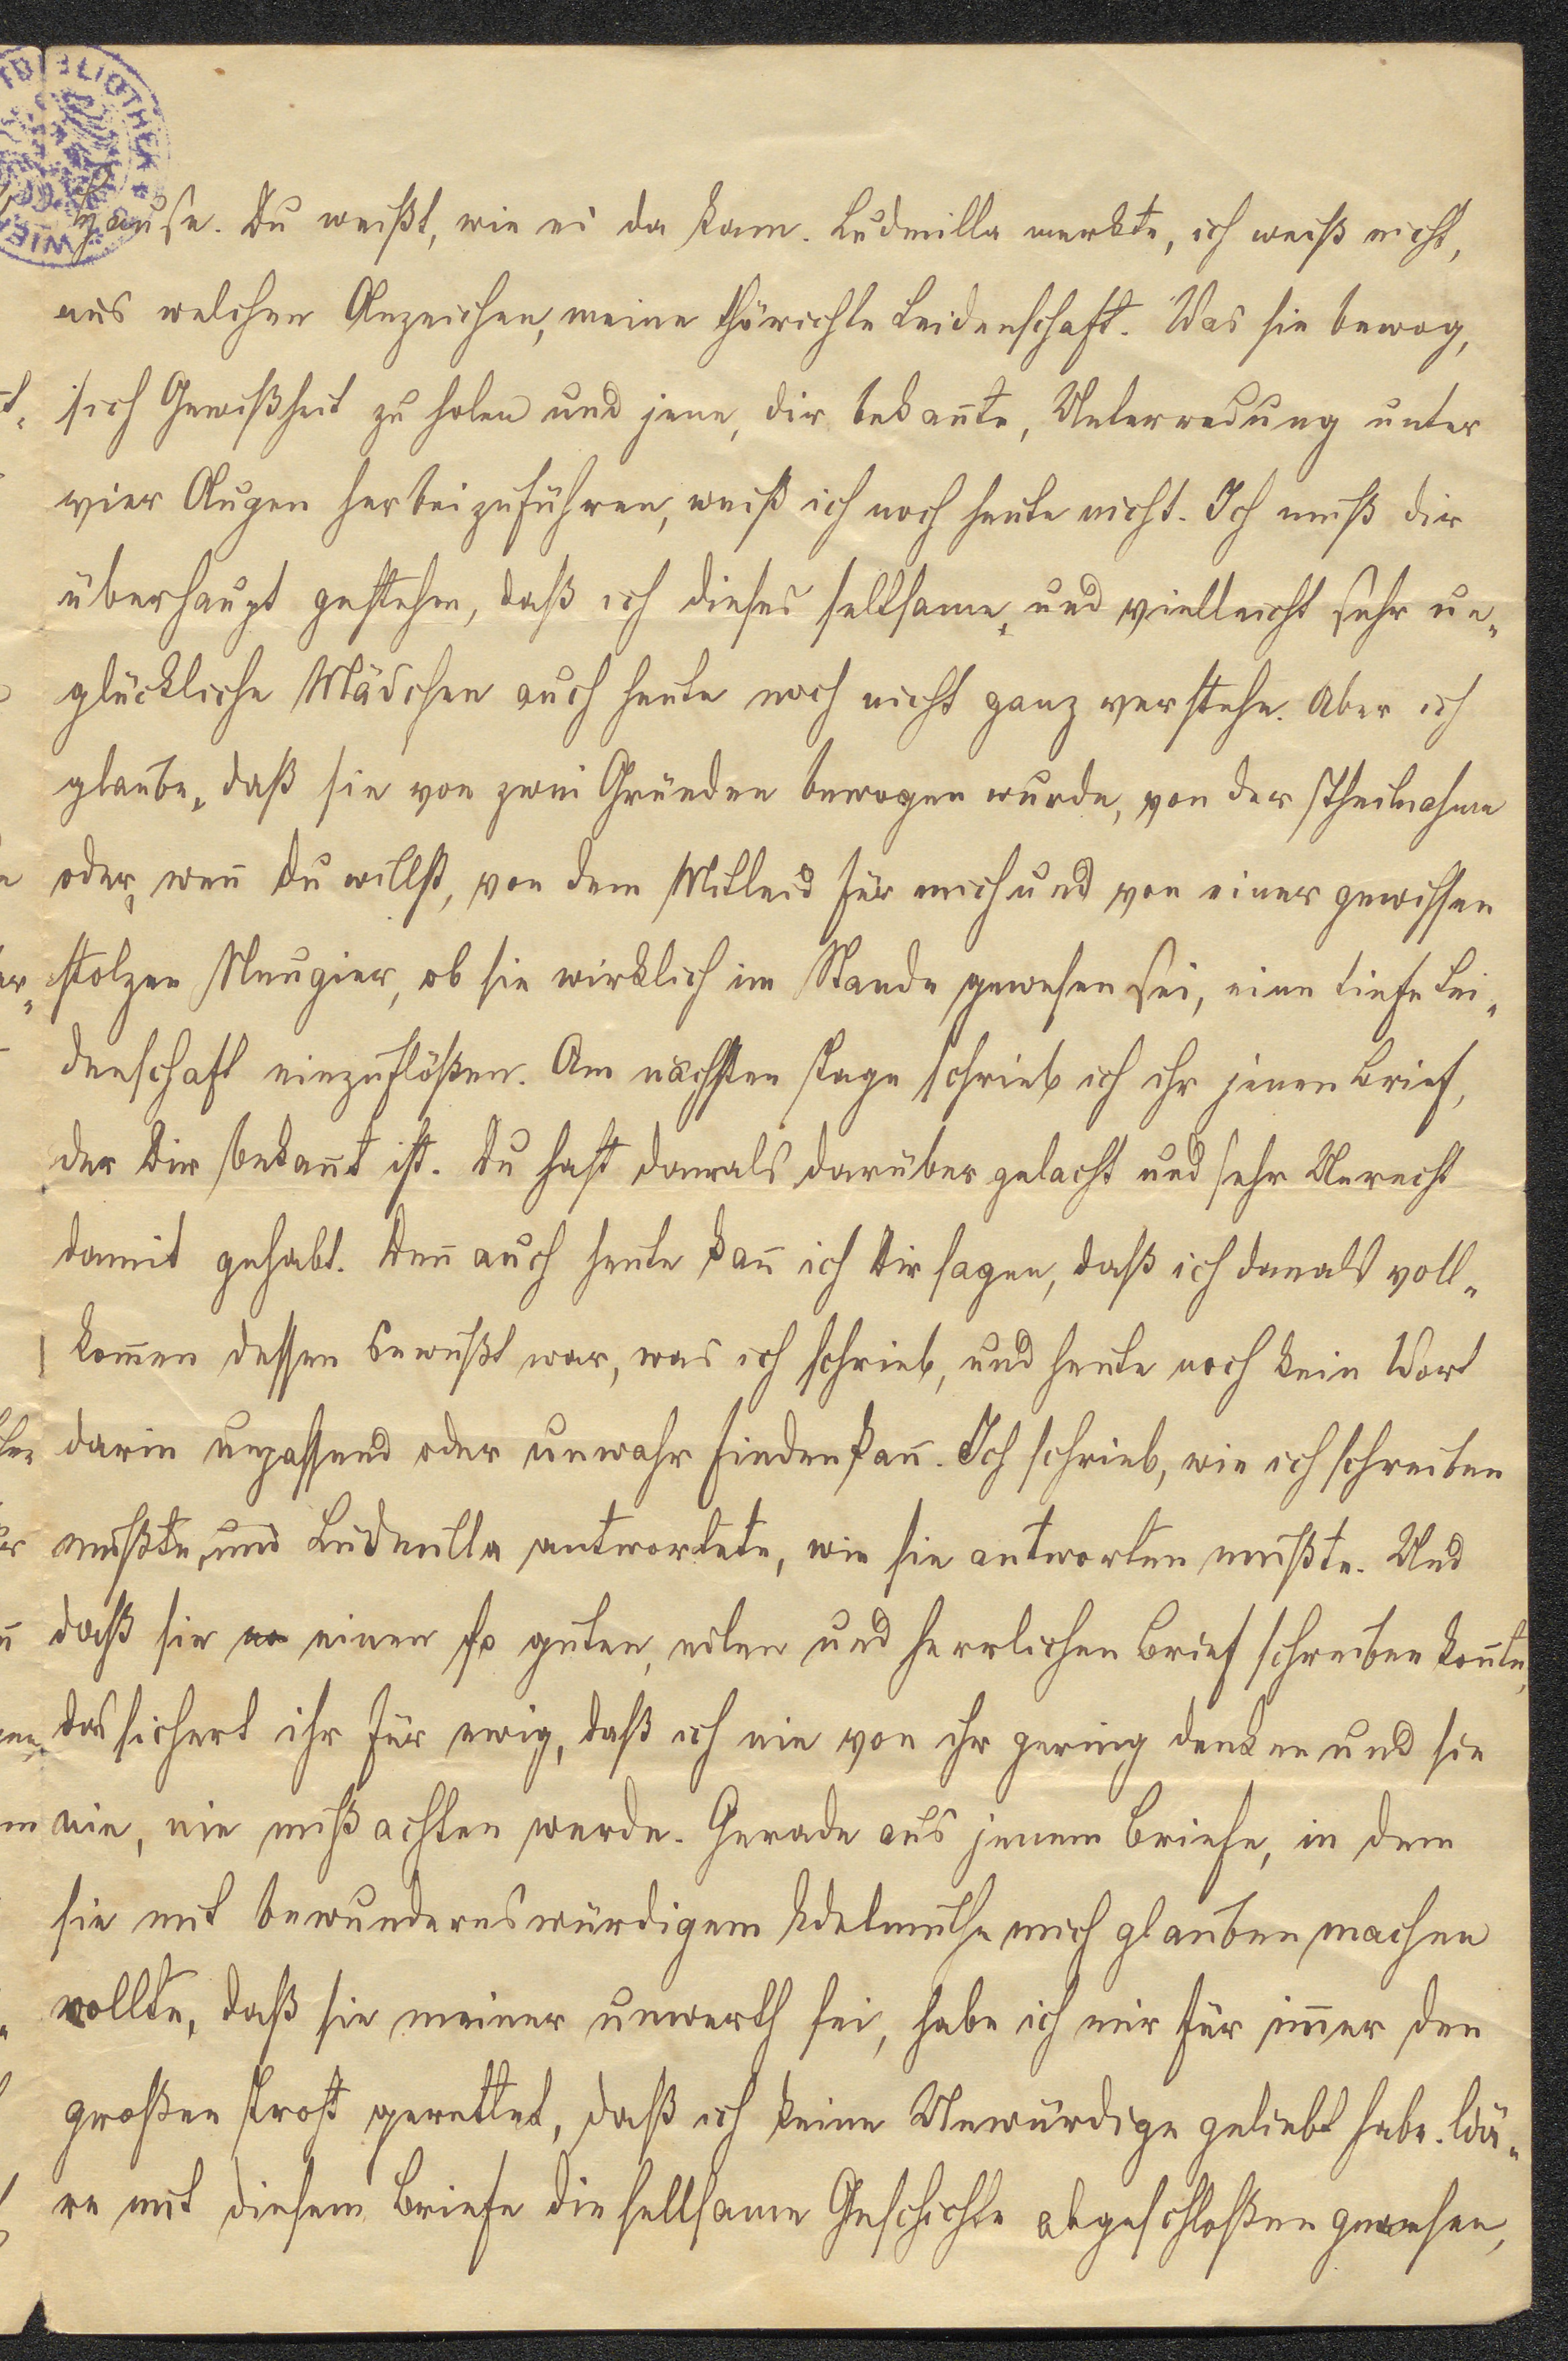 Hause. Du weißt, wie es da kam. Ludmilla merkte, ich weiß nicht,
aus welchen Anzeichen, meine thörichte Leidenschaft. Was sie bewog,
sich Gewißheit zu holen und jene, dir bekan̄te, Unterredung unter
vier Augen herbeizuführen, weiß ich noch heute nicht. Ich muß dir
überhaupt gestehen, daß ich dieses seltsame, und vielleicht sehr un„
glückliche Mädchen auch heute noch nicht ganz verstehe. Aber ich
glaube, daß sie von zwei Gründen bewogen wurde, von der Theilnahme
oder, wen̄ Du willst, von dem Mitleid für mich und von einer gewissen
stolzen Neugier, ob sie wirklich im Stande gewesen sei, eine tiefe Lei„
denschaft einzuflößen. Am nächsten Tage schrieb ich ihr jenen Brief,
der Dir bekan̄t ist. Du hast damals darüber gelacht und sehr Unrecht
damit gehabt. Den̄ auch heute kan̄ ich Dir sagen, daß ich damals voll„
kom̄en dessen bewußt war, was ich schrieb, und heute noch kein Wort
darin unpassend oder unwahr finden kan̄. Ich schrieb, wie ich schreiben
mußte, und Ludmilla antwortete, wie sie antworten mußte. Und
daß sie einen so guten, edlen und herrlichen Brief schreiben kon̄te,
das sichert ihr für ewig, daß ich nie von ihr gering denken und sie
nie, nie mißachten werde. Gerade aus jenem Briefe, in dem
sie mit bewundernswürdigem Edelmuthe mich glauben machen
wollte, daß sie meiner unwerth sei, habe ich mir für im̄er den
großen Trost gerettet, daß ich keine Unwürdige geliebt habe. Wä„
re mit diesem Briefe die seltsame Geschichte abgeschloßen gewesen,